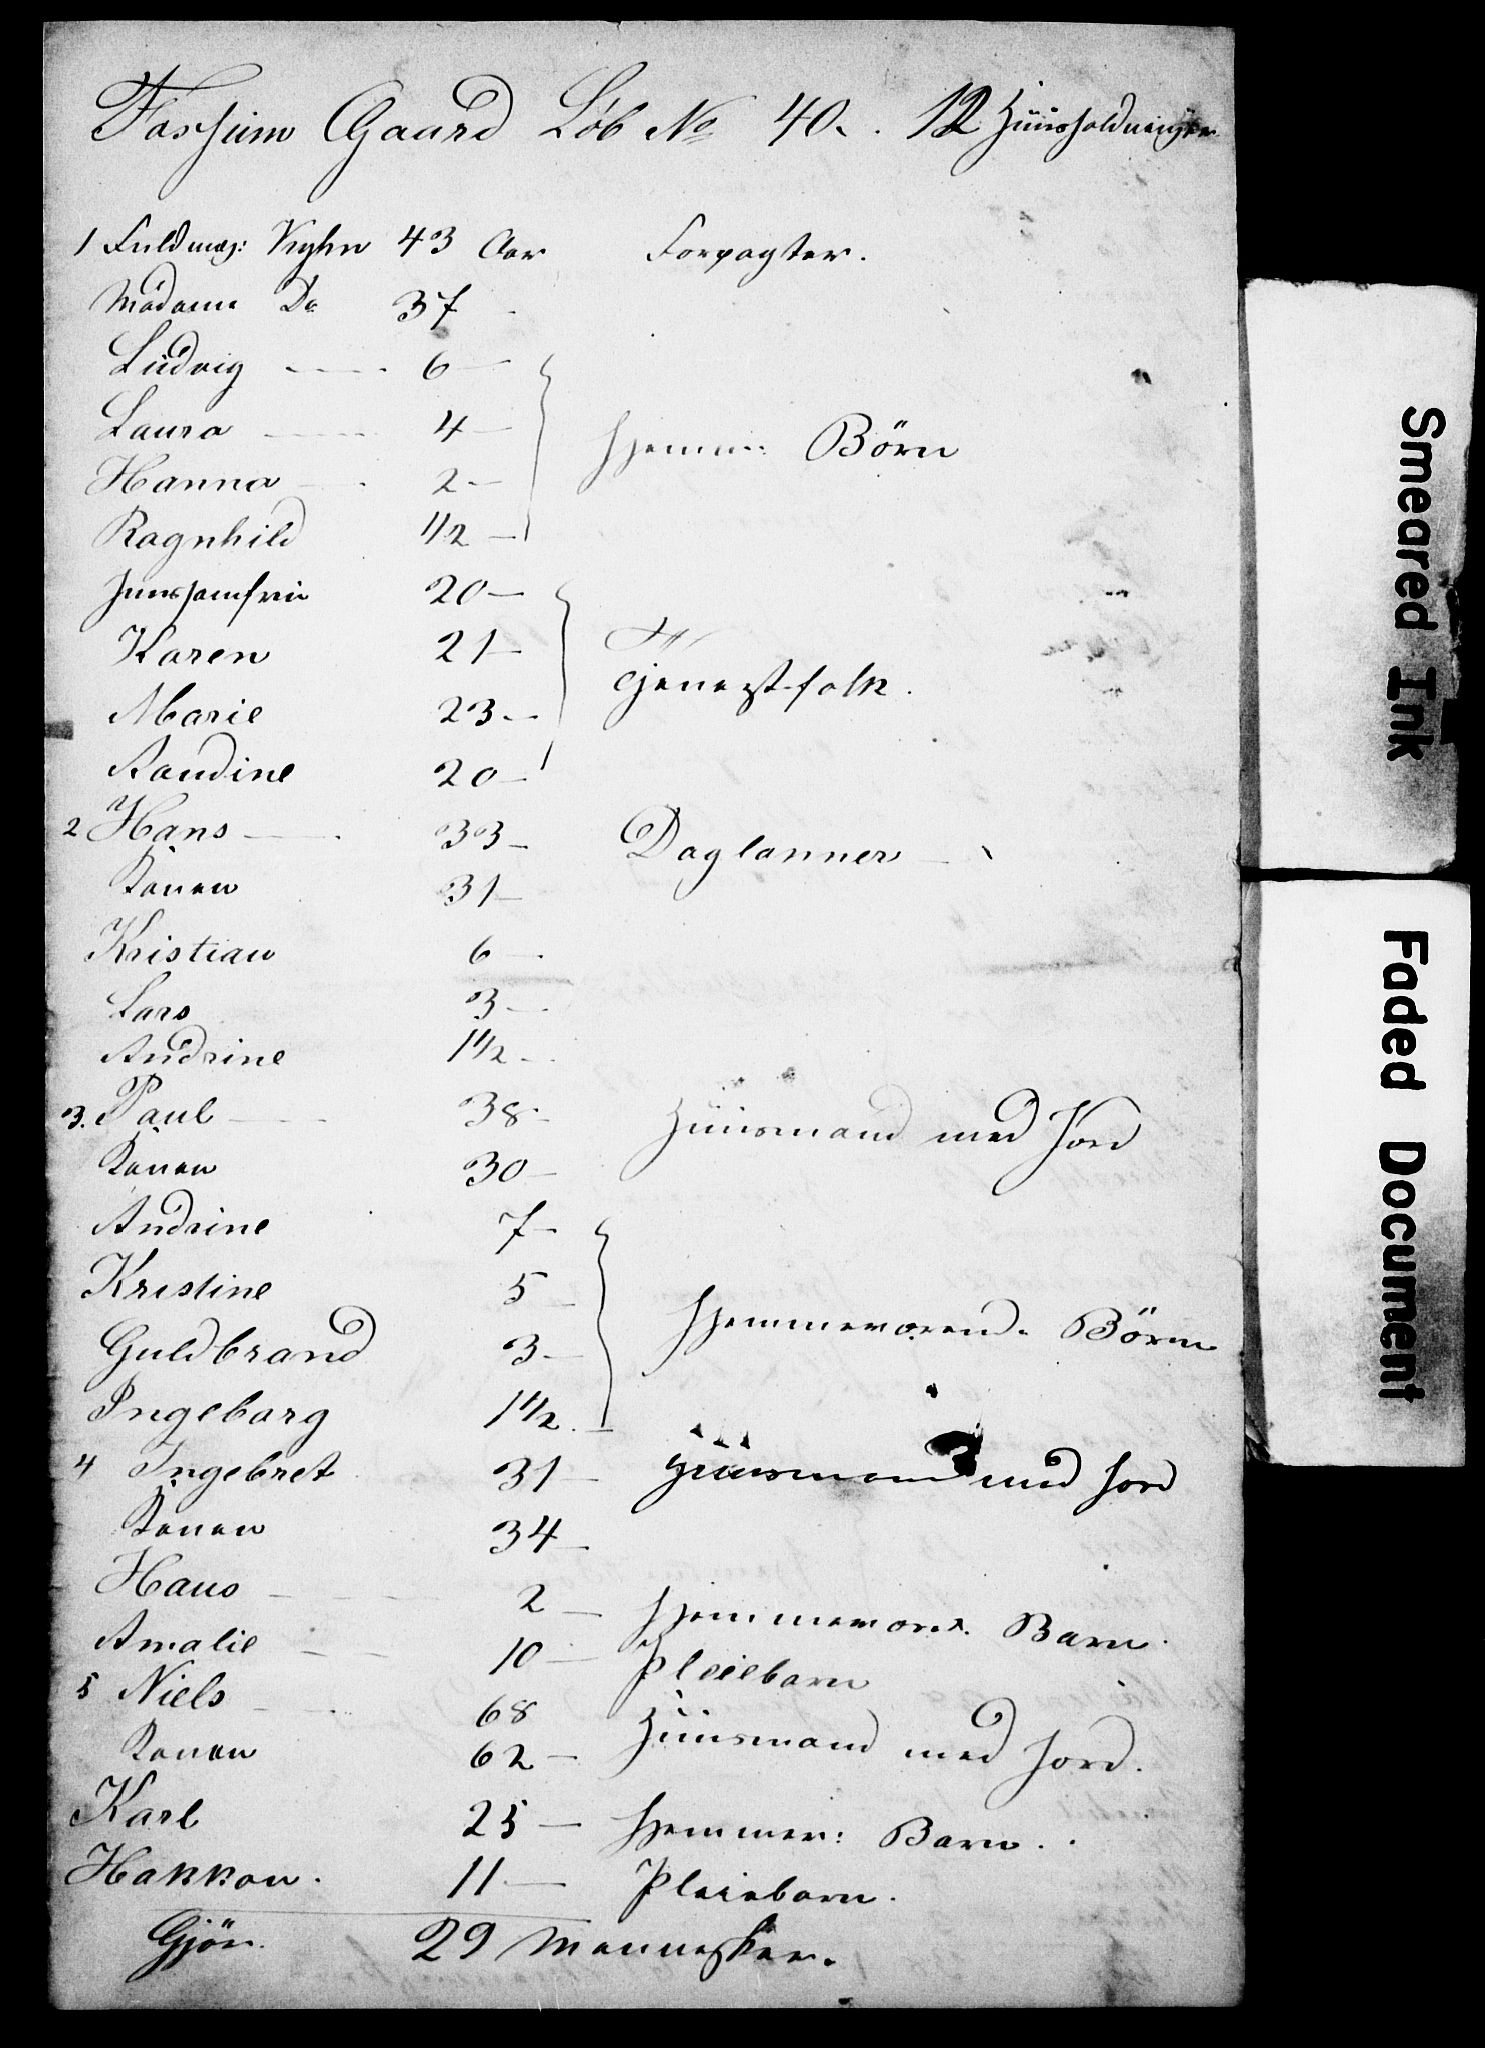 Fossum Gaard Løb No 40. 12 Huusholdninger
1 Fuldmæg: Kyhn 43 Aar Forpagter.
Madame Do 37
Ludvig 6
Laura 4 hjemm: Börn
Hanna 2
Ragnhild 1/2
Huusjomfrue 20
Karen 21
Marie 23 Tjenestfolk.
Randine 20
2 Hans 33 Daglønner
Konen 31
Kristian 6
Lars 3
Andrine 1 1/2
3. Paul 38 Huusmand med Jord
Konen 30
Andrine 7
Kristine 5 hjemmeværend. Börn
Guldbrand 3
Ingeborg 1 1/2
4 Ingebret 31 Huusmand med Jord
Konen 34
Hans 2 hjemmevær. Barn.
Amalie 10 Pleiebarn
5 Niels 68 Huusmand med Jord.
Konen 62
Karl 25 hjemmev: Barn.
Hakkon. 11 Pleiebarn.
Gjör. 29 Mennesker.
Smeared Ink
Faded Document